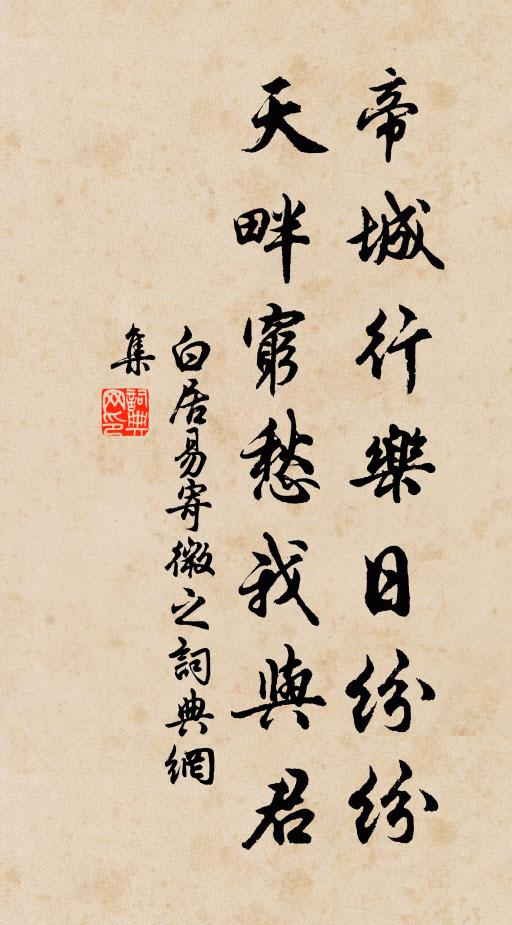 帝城行樂日紛紛
天畔窮愁我與君
白居易寄微之詞典網
集
詞典
网印